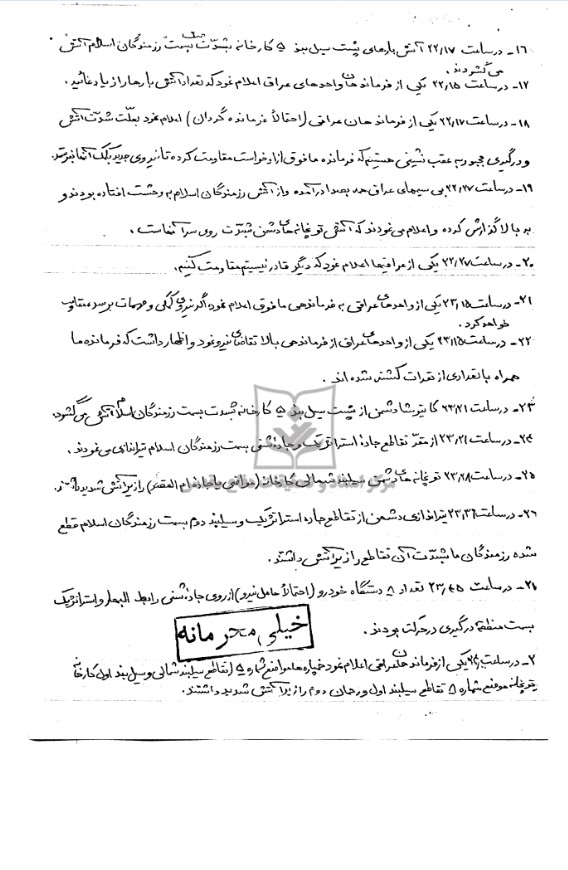 ۱۶- در ساعت ۲۲٫۱۷ آتش بارهای پشت سیل بند ۵ کارخانه بشدت بسمت رزمندگان اسلام آتش
می گشودند.
۱۷- در ساعت ۲۲٫۱۵ یکی از فرماندهان واحدهای عراق اعلام نمود که تعداد آتش بارها را زیاد نمائید.
۱۸- در ساعت ۲۲٫۱۷ یکی از فرماندهان عراقی (احتمالاً فرمانده گردان) اعلام نمود بعلت شدت آتش
و درگیری مجبور به عقب نشینی هستیم که فرمانده مافوق از او درخواست مقاومت کرده تا نیروی جدید بکمک آنها برسد.
۱۹- در ساعت ۲۲٫۲۷ بی سیمهای عراق همه بصدا درآمده و از آتش رزمندگان اسلام به وحشت افتاده بودند و
به بالا گزارش کرده و اعلام می نمودند که آتش توپخانه های دشمن بشدت روی سر آنهاست.
۲۰- در ساعت ۲۲٫۲۷ یکی از عراقیها اعلام نمود که دیگر قادر نیستیم مقاومت کنیم.
۲۱- در ساعت ۲۳٫۱۵ یکی از واحدهای عراقی به فرماندهی مافوق اعلام نمود اگر نیروی کمکی و مهمات نرسد عقب
خواهد کرد.
۲۲- در ساعت ۲۳٫۱۵ یکی از واحدهای عراق از فرماندهی بالا تقاضای نیرو نمود و اظهار داشت که فرمانده ما
همراه با تعدادی از نفرات کشته شده اند.
۲۳- در ساعت ۲۳٫۲۱ کاتیوشا دشمن از پشت سیل بند ۵ کارخانه بشدت بسمت رزمندگان اسلام آتش می گشود.
۲۴- در ساعت ۲۳٫۲۱ از مقر تقاطع جاده استراتژیک و جاده شنی بسمت رزمندگان اسلام تیراندازی می نمودند.
۲۵- در ساعت ۲۳٫۲۸ توپخانه های دشمن سیلبند شمالی کارخانه را زیر آتش شدید داشتند.
۲۶- در ساعت ۲۳٫۳۱ تیراندازی دشمن از تقاطع جاده استراتژیک و سیلبند دوم بسمت رزمندگان اسلام قطع
شده رزمندگان ما بشدت آن تقاطع را زیر آتش داشتند.
۲۷- در ساعت ۲۳٫۴۵ تعداد ۸ دستگاه خودرو (احتمالاً حامل نیرو) از روی جاده شنی رابط البهار و استراتژیک
بسمت منطقه درگیری در حرکت بودند.
خیلی محرمانه
در ساعت یکی از فرماندهان عراقی اعلام نمود خمپاره ها مواضع شماره ۵ (تقاطع سیلبند شمالی و سیل بند اول کارخانه
توپخانه موضع شماره ۸ تقاطع سیلبند اول و دوم را زیر آتش شدید داشتند.